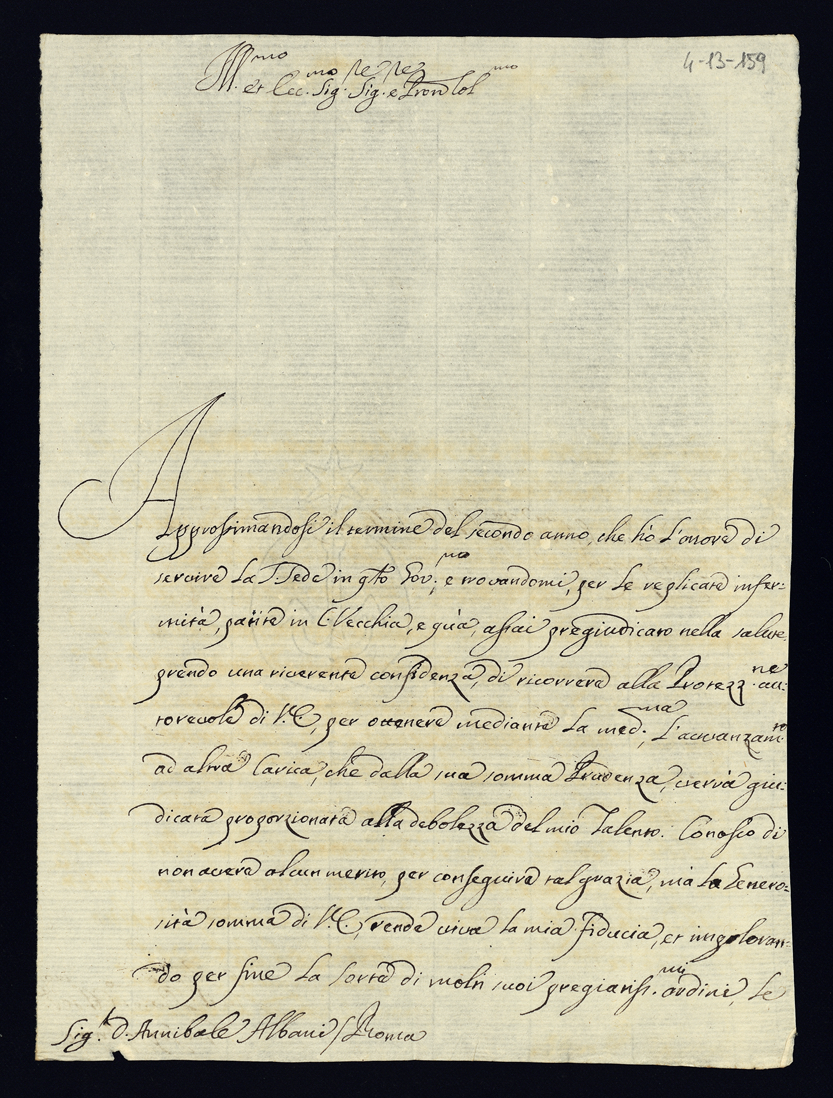 4-13-159
Ill.mo et Ecc.mo Sig.re Sig.re e Pron Col.mo
Approssimandosi il termine del secondo anno, che hò l'onore di
servire la S. Sede in q̃to Gov.no, e trovandomi, per le replicate infer-
mità, patite in C. Vecchia, e quà, assai pregiudicato nella salute,
prendo una riverente confidenza, di ricorrere alla Protezz.ne au-
torevole di V.E., per ottenere mediante la med.ma, l'avvanzam.to
ad altra Carica, che dalla sua somma Prudenza, verrà giu-
dicata proporzionata alla debolezza del mio Talento. Conosco di
non avere alcun merito, per conseguire tal grazia, mà la Genero-
sità somma di V.E., rende viva la mia fiducia, et imploran-
do per fine la sorte di molti suoi pregiatiss.mi ordini, le
Sig.r D. Annibale Albani / Roma